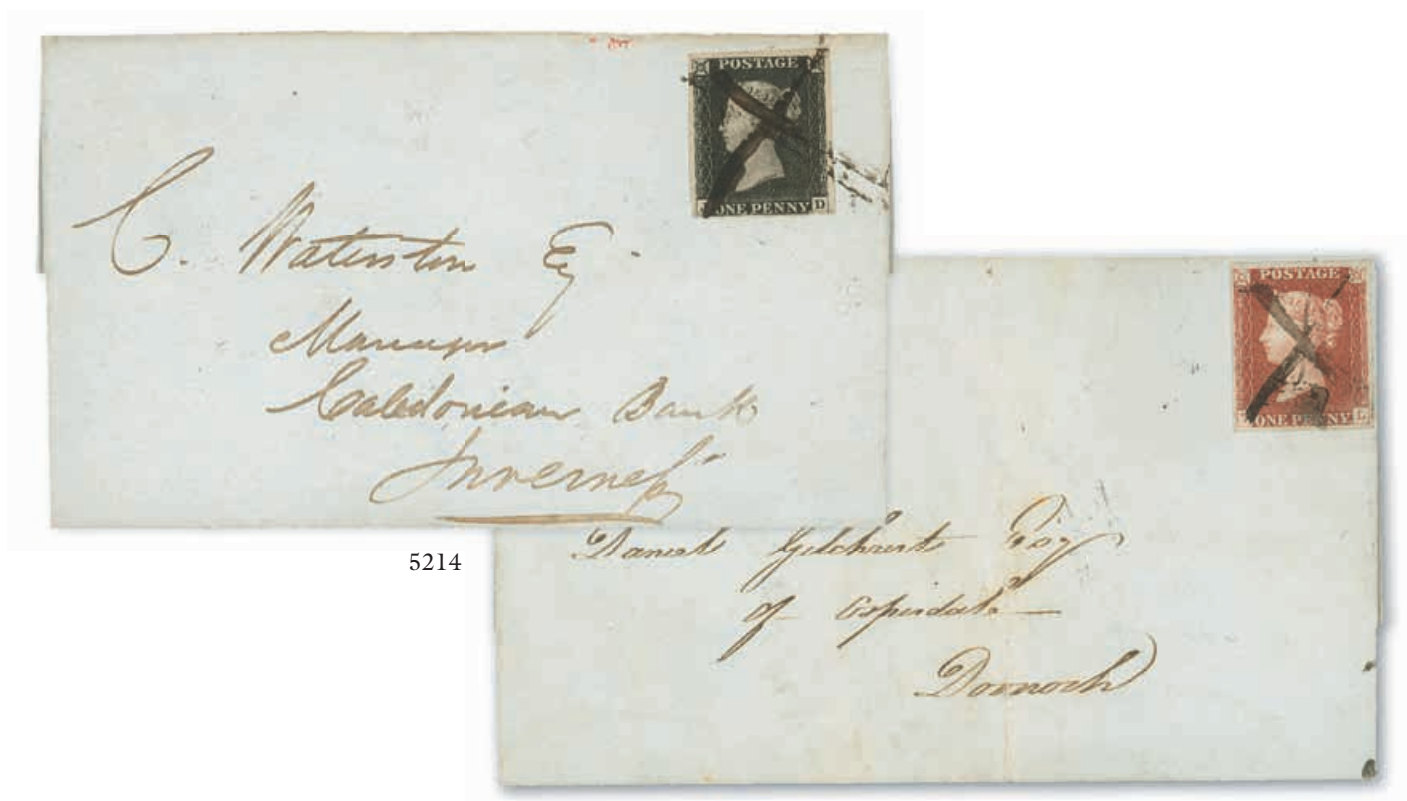 POSTAGE
ONE PENNY D
C. Waterston Esq
Manager
Caledonian Bank
Inverness
5214
POSTAGE
ONE PENNY L
Daniel Gilchrist Esq
of Ospisdale
Dornoch